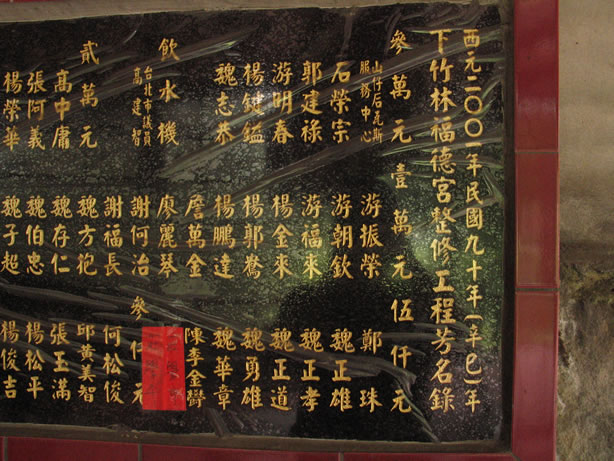 西元二〇〇一年民國九十年(辛巳)年
下竹林福德宮整修工程芳名錄
參萬元 壹萬元 伍仟元
山仔后瓦斯
服務中心 游振榮 鄭珠
石榮宗 游朝欽 魏正雄
郭建祿 游福來 魏正孝
游明春 楊金來 魏正道
楊鍵鎰 楊郭鶯 魏勇雄
魏志恭 楊鵬達 魏華章
詹萬金 陳李金
飲水機 廖麗琴
台北市議員
高建智 謝何治 參仟元
謝福長 何松俊
貳萬元 魏方 邱黃美智
高中庸 魏存仁 張玉滿
張阿義 魏伯忠 楊松平
楊榮華 魏子超 楊俊吉